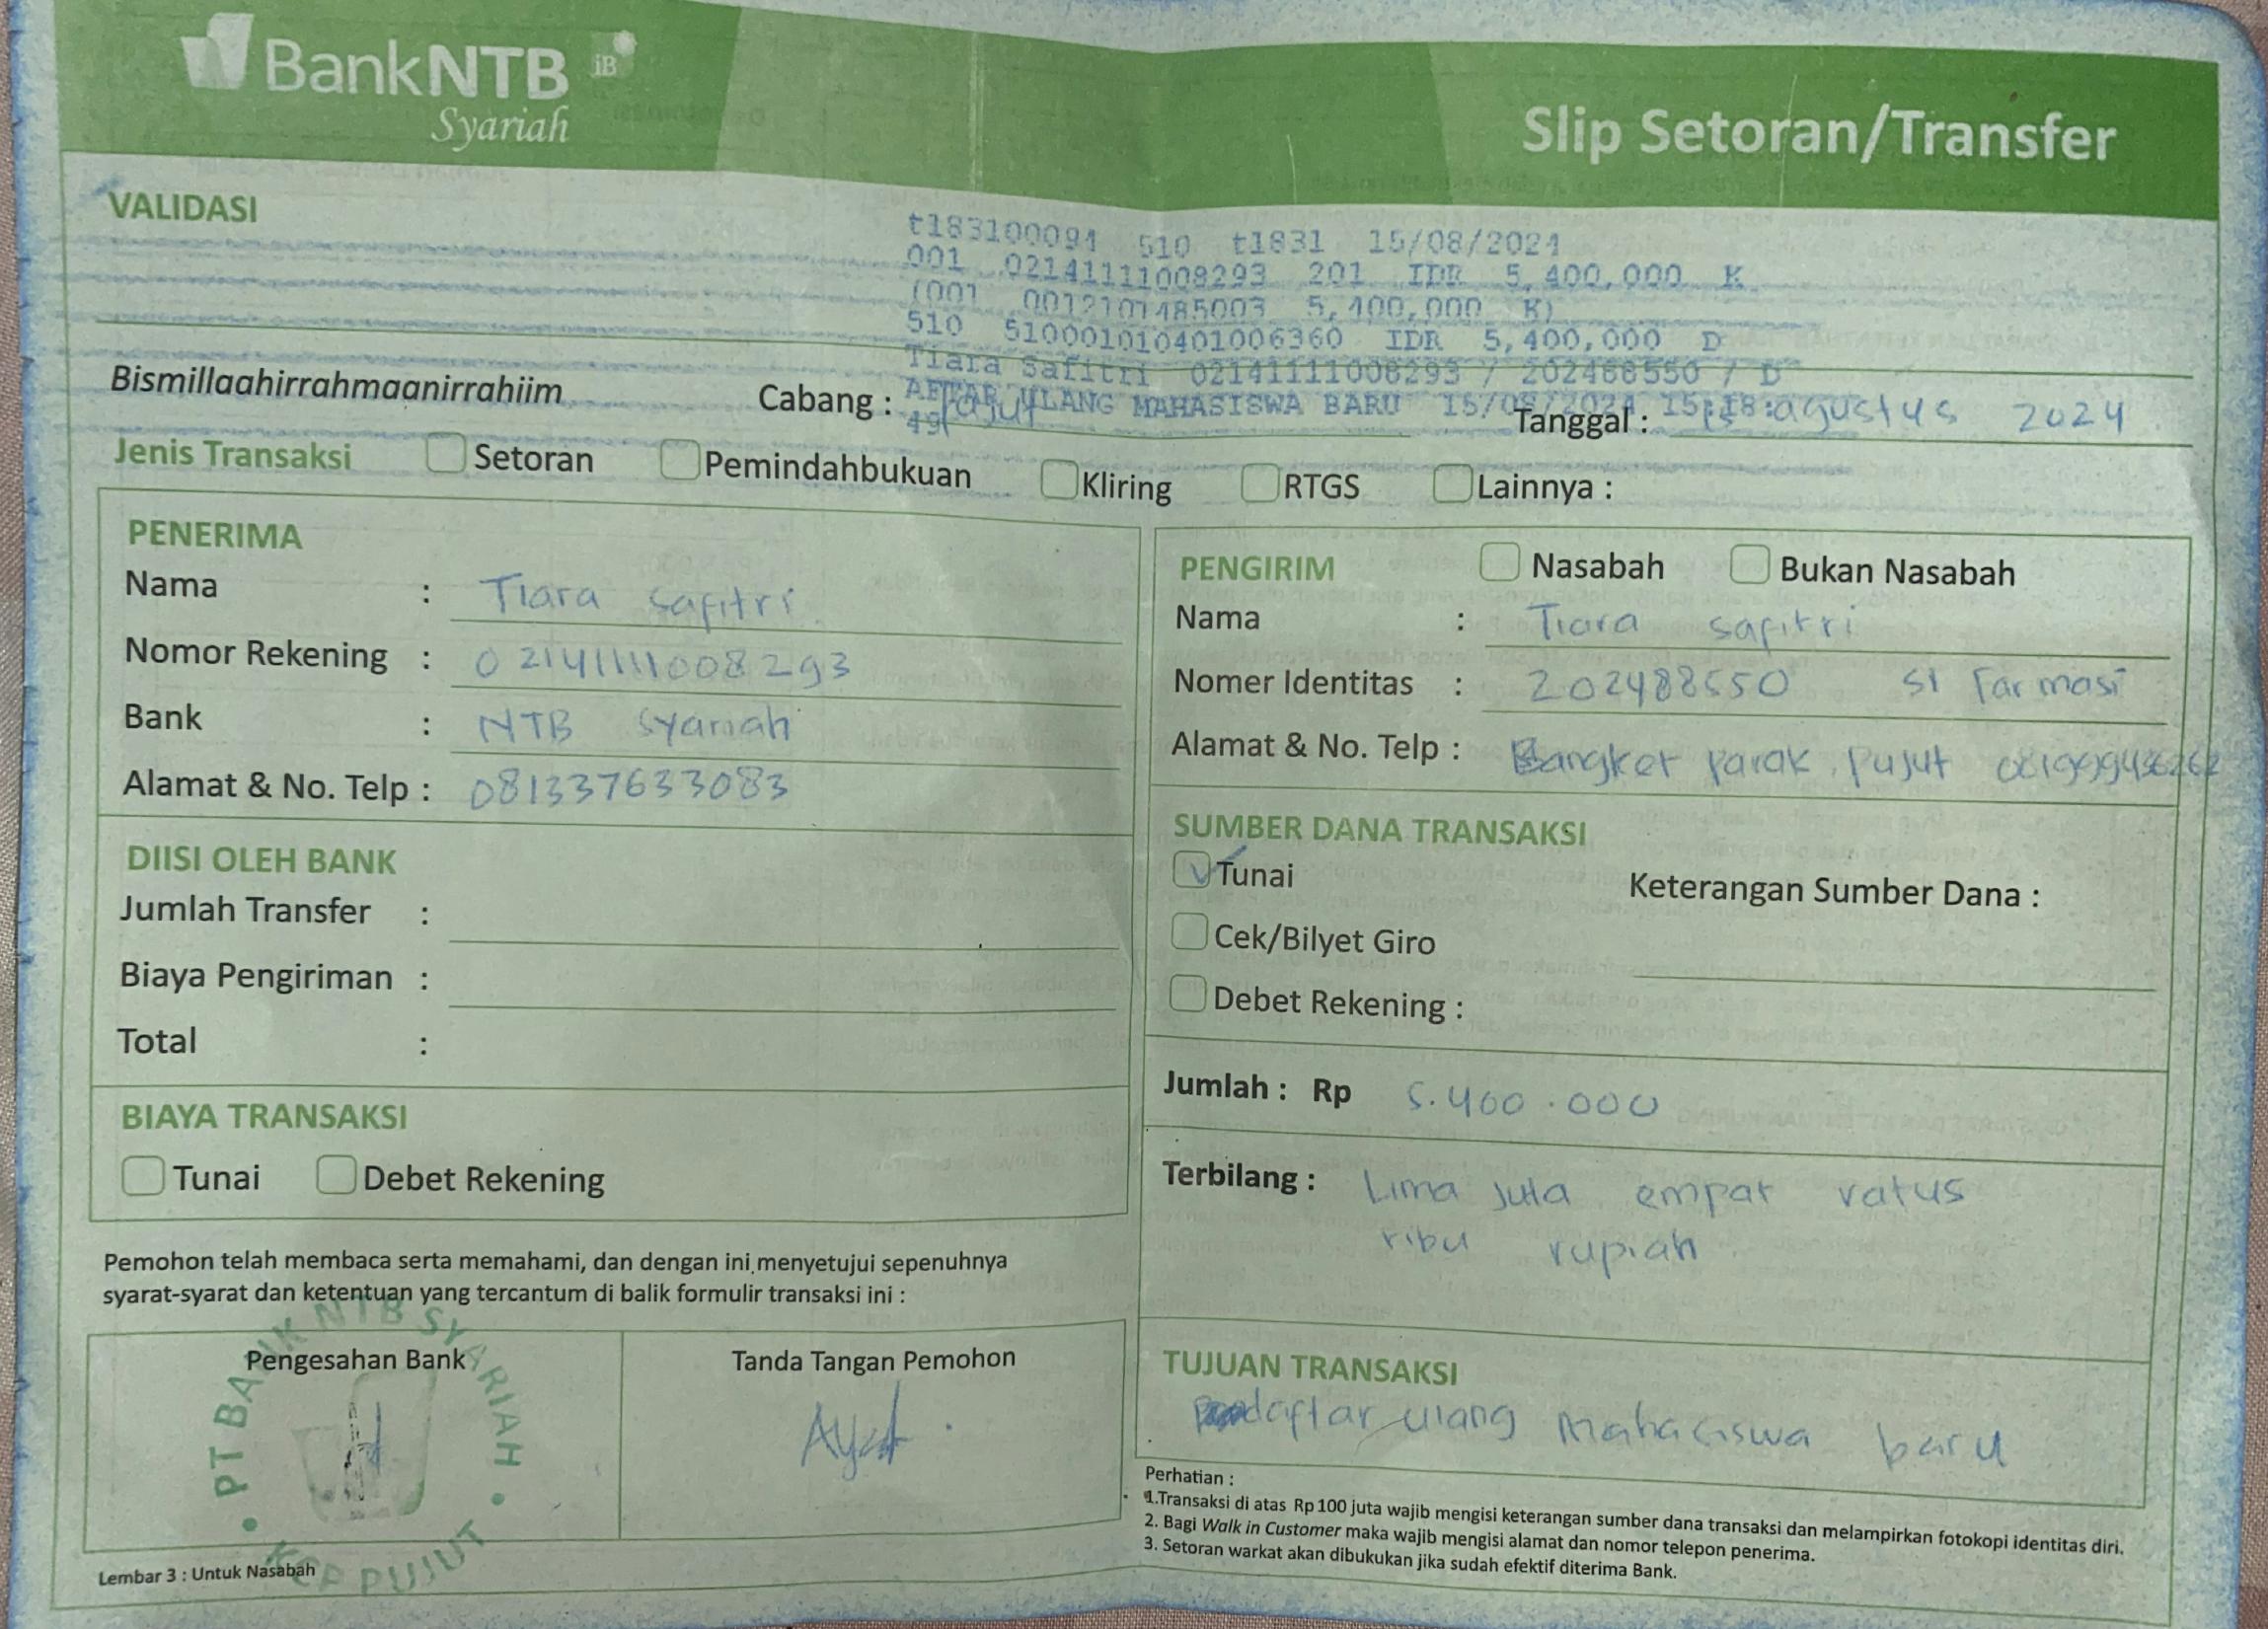 BankNTB iB
Syariah
Slip Setoran/Transfer
VALIDASI
t183100094 510 t1831 15/08/2024
001 02141111008293 201 IDR 5,400,000 K
(001 0012101485003 5,400,000 K)
510 510001010401006360 IDR 5,400,000 D
Tiara Safitri 02141111008293 / 202488550 / D
AFTAR ULANG MAHASISWA BARU 15/08/2024 15:18:
49
Bismillaahirrahmaanirrahiim Cabang : Pujut Tanggal : 15 agustus 2024
Jenis Transaksi Setoran Pemindahbukuan Kliring RTGS Lainnya :
PENERIMA
Nama : Tiara Safitri
Nomor Rekening : 02141111008293
Bank : NTB Syariah
Alamat & No. Telp : 081337633083
DIISI OLEH BANK
Jumlah Transfer :
Biaya Pengiriman :
Total :
BIAYA TRANSAKSI
Tunai Debet Rekening
Pemohon telah membaca serta memahami, dan dengan ini menyetujui sepenuhnya
syarat-syarat dan ketentuan yang tercantum di balik formulir transaksi ini :
Pengesahan Bank Tanda Tangan Pemohon
PT BANK NTB SYARIAH
KCP PUJUT
Lembar 3 : Untuk Nasabah
PENGIRIM Nasabah Bukan Nasabah
Nama : Tiara safitri
Nomer Identitas : 202488550 S1 Farmasi
Alamat & No. Telp : Bangket Parak, Pujut
SUMBER DANA TRANSAKSI
Tunai Keterangan Sumber Dana :
Cek/Bilyet Giro
Debet Rekening :
Jumlah : Rp 5.400.000
Terbilang : Lima Juta empat ratus
ribu rupiah
TUJUAN TRANSAKSI
daftar ulang Mahasiswa baru
Perhatian :
1.Transaksi di atas Rp 100 juta wajib mengisi keterangan sumber dana transaksi dan melampirkan fotokopi identitas diri.
2. Bagi Walk in Customer maka wajib mengisi alamat dan nomor telepon penerima.
3. Setoran warkat akan dibukukan jika sudah efektif diterima Bank.